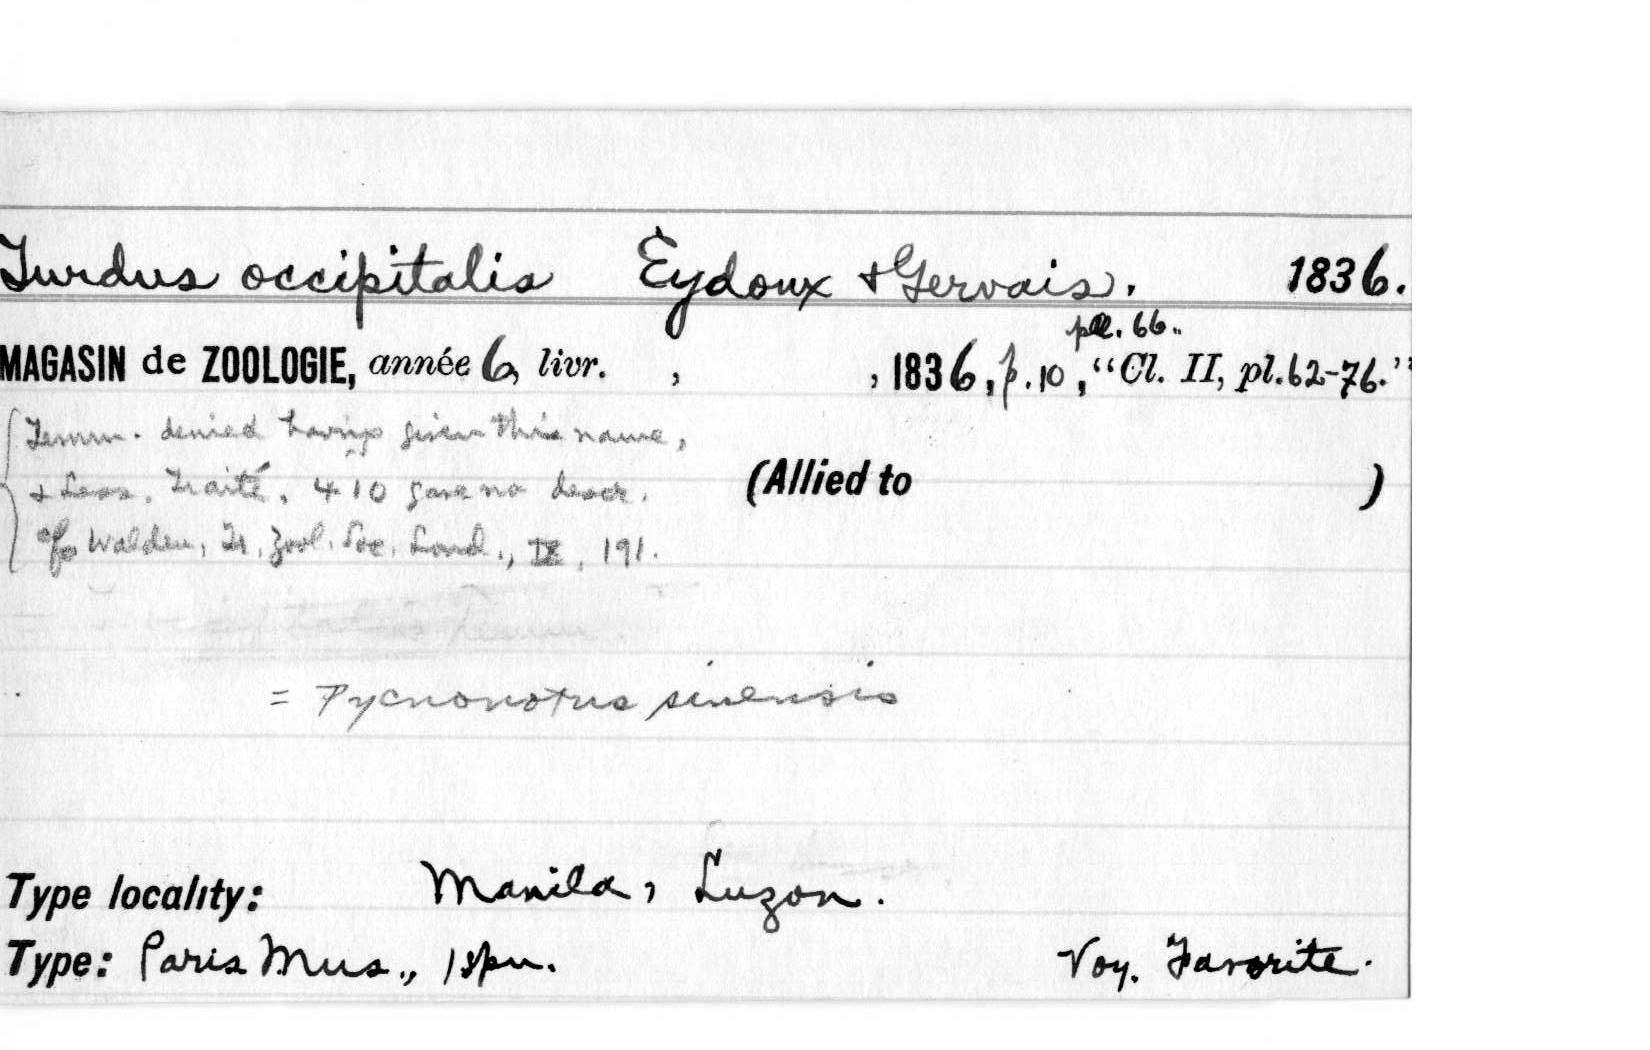 Turdus occipitalis Eydoux & Gervais. 1836.
pl. 66.
MAGASIN de ZOOLOGIE, année 6, livr. , , 1836, p. 10, "Cl. II, pl. 62-76."
Temm. denied having given this name,
& Less. Traité, 410 gave no descr.
(Allied to )
cf. Walden, Tr. Zool. Soc. Lond., IX, 191.
= Pycnonotus sinensis
Type locality: Manila, Luzon.
Type: Paris Mus., 1 spn. Voy. Favorite.